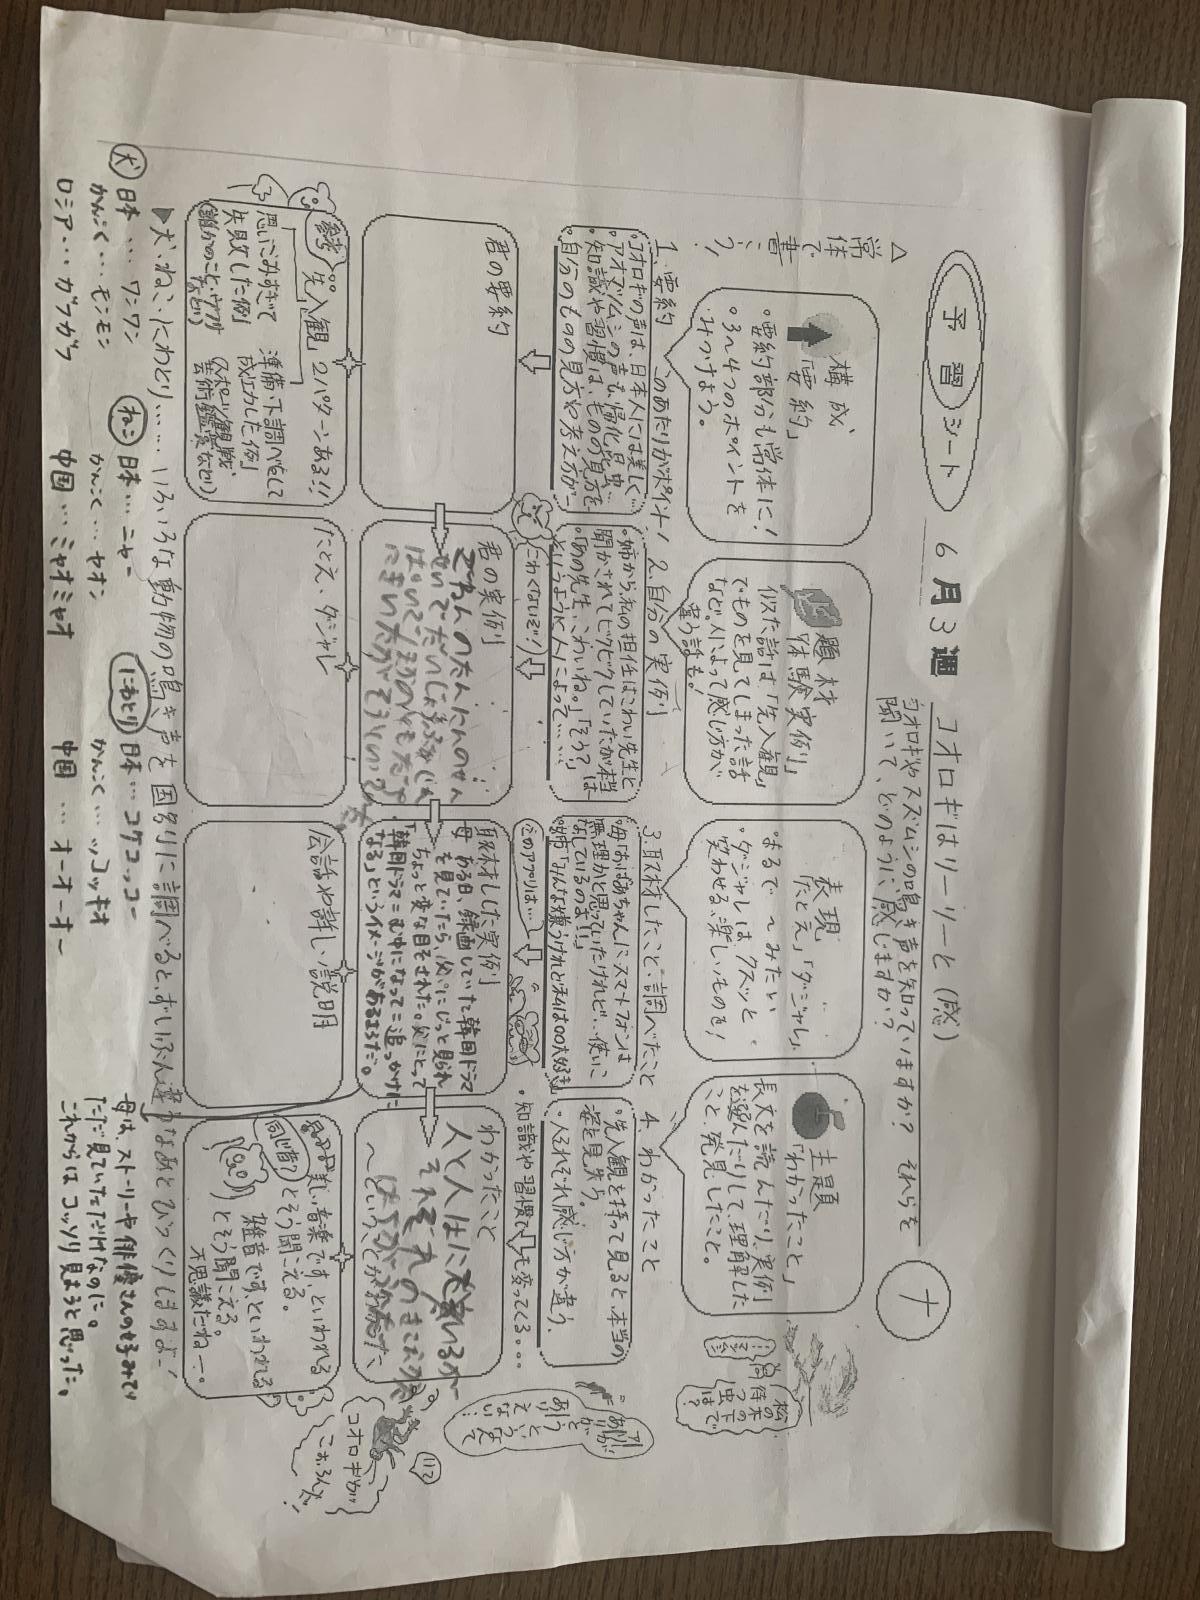 予習シート 6月3週 コオロギはリーリーと(感)
コオロギやスズムシの鳴き声を知っていますか? それらを
聞いて、どのように感じますか?
ナ
△常体で書こう!
構成
「要約」
・要約部分も常体に!
・3〜4つのポイントを
みつけよう。
題材
「体験実例」
似た話は「先入観」
でものを見てしまった話
など。人によって感じ方が
違う話も!
表現
「たとえ」「ダジャレ」
・まるで〜みたい
・ダジャレは、クスッと
笑わせる、楽しいものを!
主題
「わかったこと」
長文を読んだり、実例
を選んだりして、理解した
こと、発見したこと。
1.要約 このあたりがポイント!
・コオロギの声は、日本人には美しく…
・アオマツムシの声も、帰化昆虫…
・知識や習慣は、ものの見方を…
・自分のものの見方や考え方が…
2.自分の実例
・姉から、私の担任はこわい先生と
聞かされてビクビクしていたが本当は
・「あの先生、こわいね。」「そう?」
というように人によって……
3.取材したこと・調べたこと
・母「おばあちゃんにスマートフォンは
無理かと思っていたけれど…使いこ
なしているのよ!!」
・姉「みんな嫌うけれど私は○○大好き」
4.わかったこと
・先入観を持って見ると、本当の
姿を見失う。
・人それぞれ感じ方が違う。
・知識や習慣でも変ってくる。。。
こわくないぞ!
このアプリは…
君の要約
君の実例
取材した実例
母 ある日、録画していた韓国ドラマ
を見ていたら、父にじっと見られ
ちょっと変な目をされた。父にとって
「韓国ドラマ=む中になって=追っかけに
なる」というイメージがあるようだ。
わかったこと
人と人はにて
それぞれの
〜ということがわかった
参考 先入観 2パターンある!!
思いこみすぎて
失敗した例
準備・下調べをして
成功した例
(スポーツ観戦、
芸術鑑賞など)
たとえ・ダジャレ
会話や詳しい説明
美しい音楽です、といわれる
とそう聞こえる。
同じ音?
雑音です、といわれる
とそう聞こえる。
不思議だね—。
松の木の下で
待つ虫は?
アリが
ありがとう
コオロギが
ころんだ!
▶犬、ねこ、にわとり……いろいろな動物の鳴き声を国別に調べると、ずいぶん違うなあとびっくりしますよ!
犬 日本…ワンワン
かんこく…モンモン
ロシア…ガフガフ
ねこ 日本…ニャー
かんこく…ヤオン
中国…ミャオミャオ
にわとり 日本…コケコッコー
かんこく…ッコッキオ
中国…オーオーオー
母は、ストーリーや俳優さんのせりふみて
ただ見ていただけなのに。
これからはコッソリ見ようと思った。